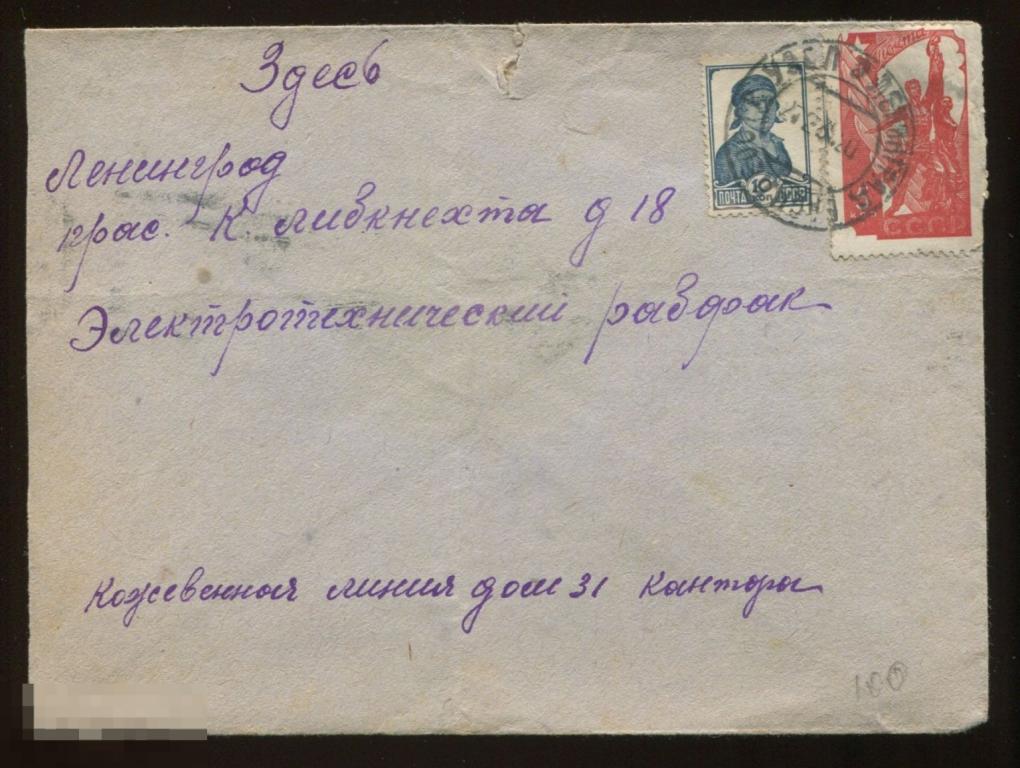 Здесь
Ленинград
прос. К. Либкнехта д 18
Электротехнический рабфак
Кожевенная линия дом 31 кантора
ПОЧТА 10 КОП. СССР
СССР
100